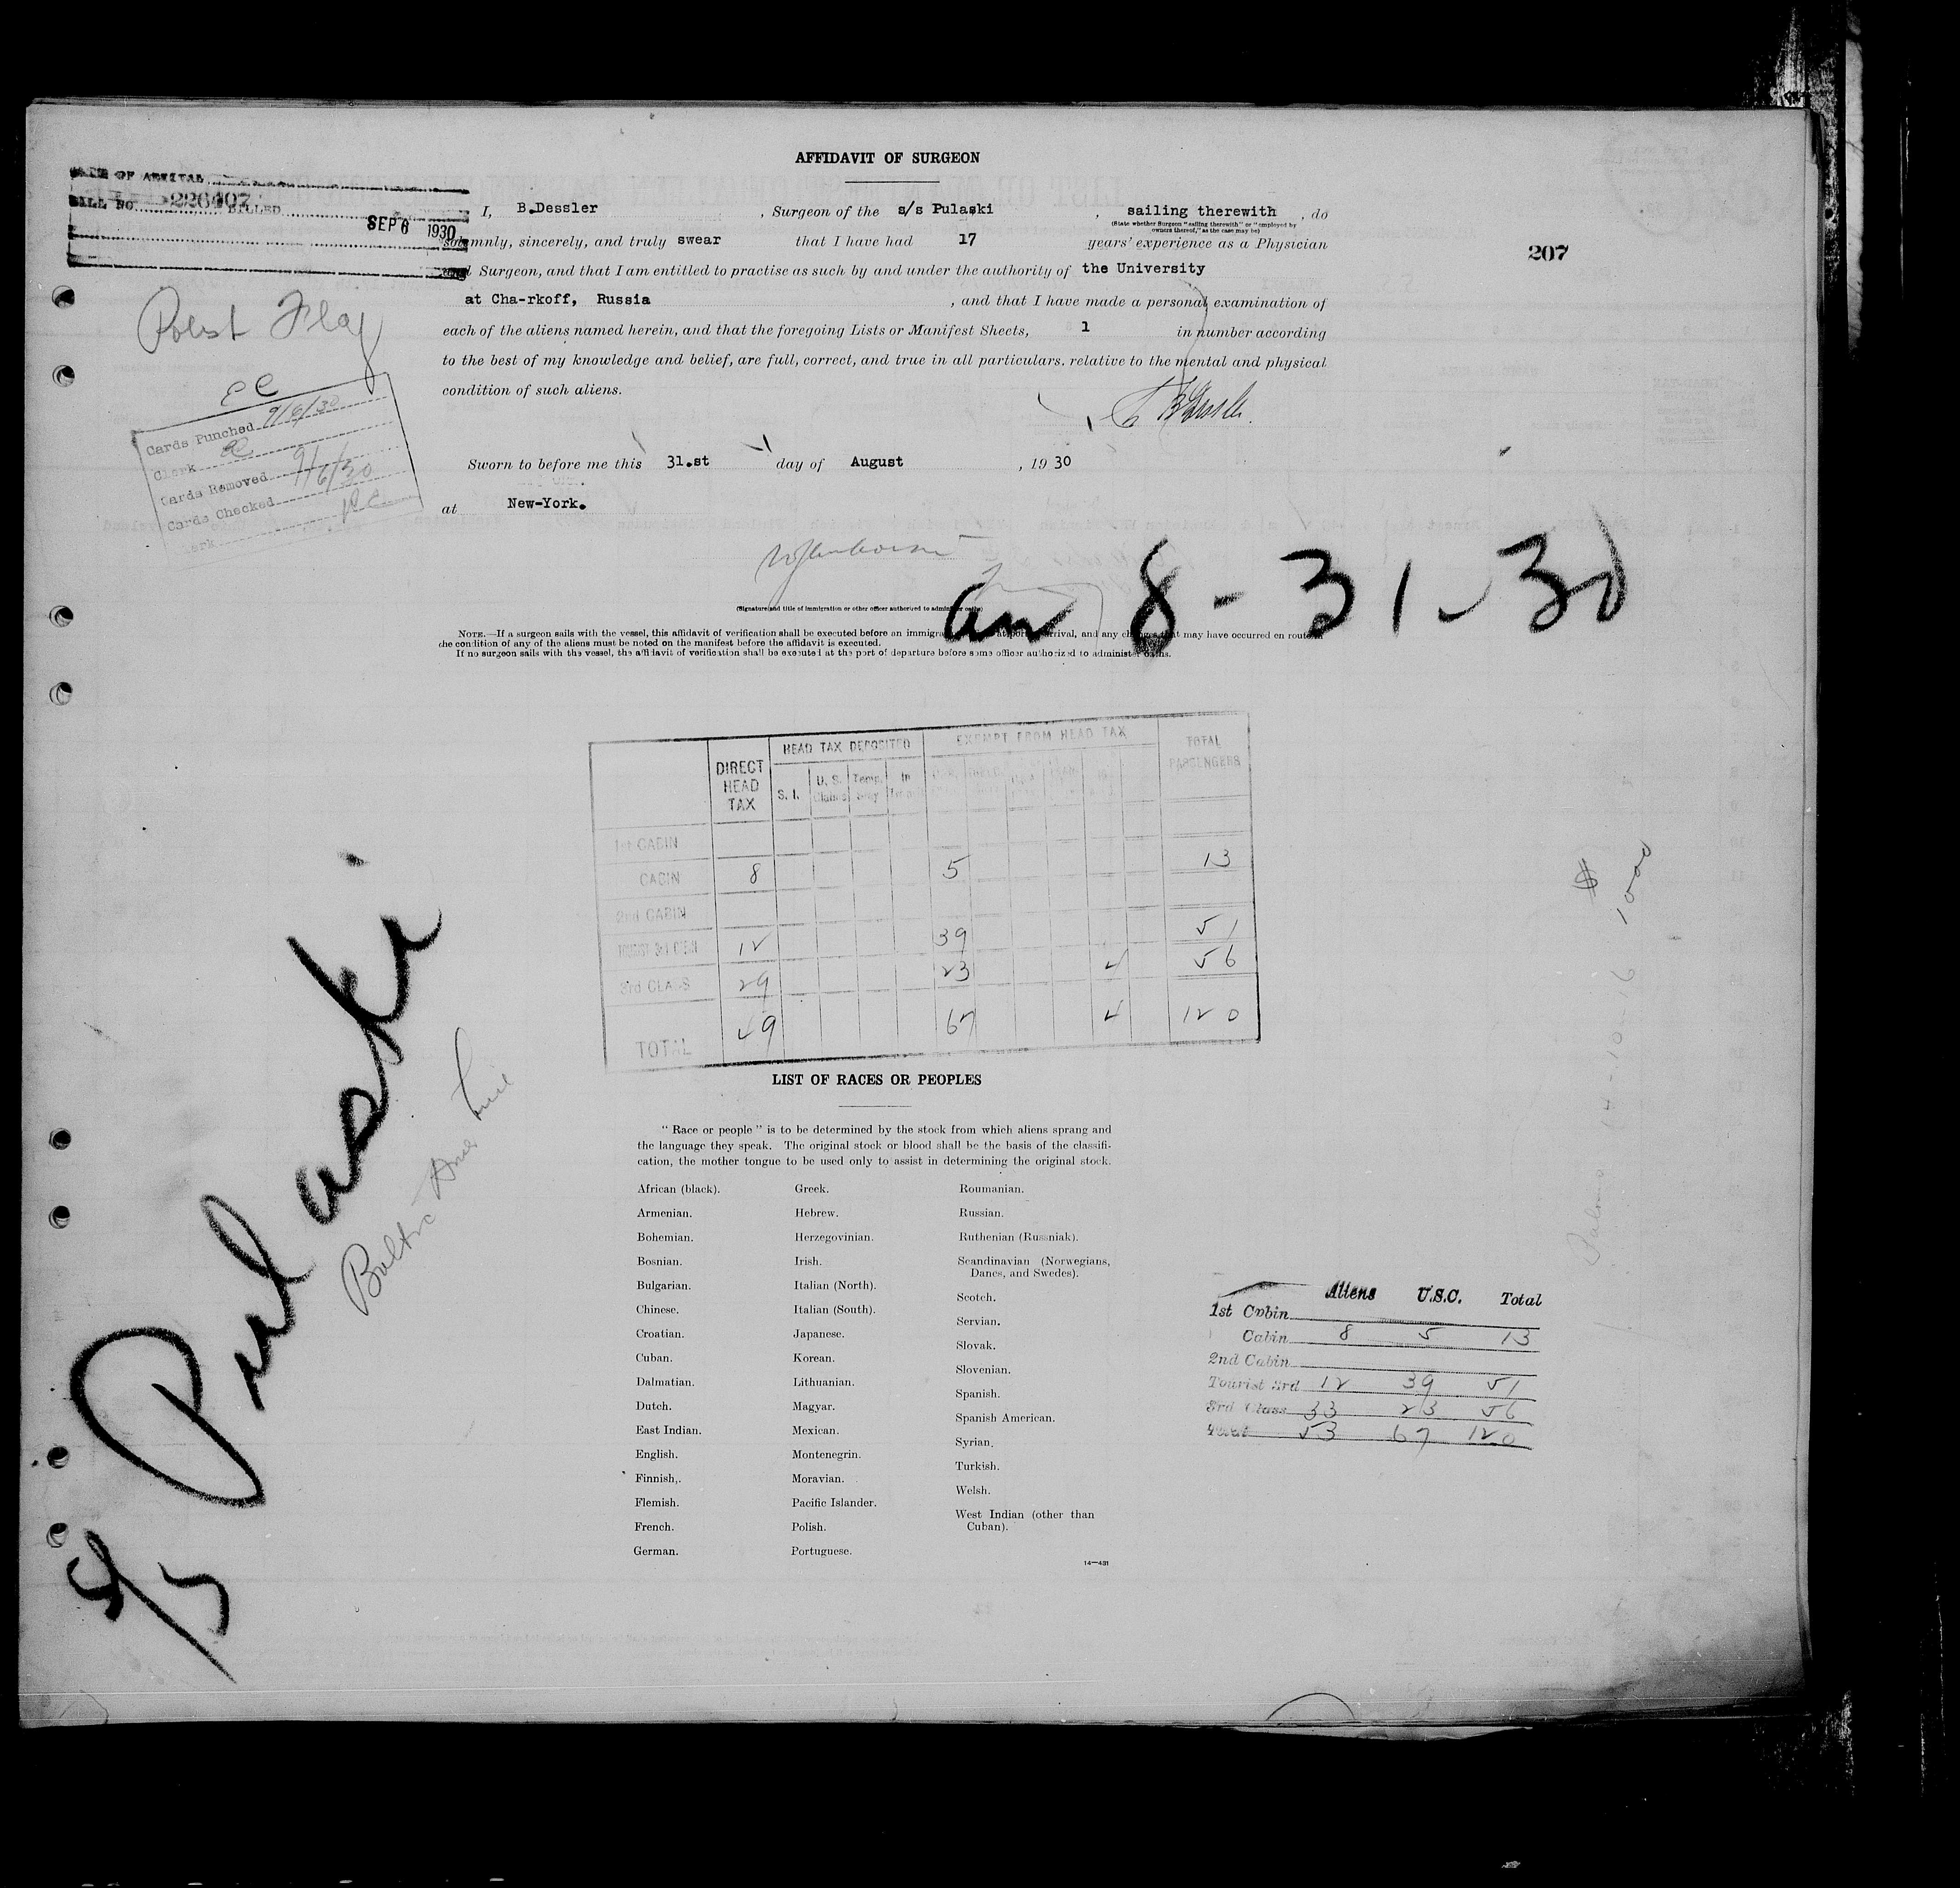 AFFIDAVIT OF SURGEON
DATE OF ARRIVAL
BILL NO. 226407 BILLED
SEP 6 1930
I, B.Dessler , Surgeon of the s/s Pulaski , sailing therewith , do
(State whether Surgeon "sailing therewith" or "employed by
owners thereof," as the case may be)
solemnly, sincerely, and truly swear that I have had 17 years' experience as a Physician
207
and Surgeon, and that I am entitled to practise as such by and under the authority of the University
at Cha-rkoff, Russia , and that I have made a personal examination of
each of the aliens named herein, and that the foregoing Lists or Manifest Sheets, 1 in number according
to the best of my knowledge and belief, are full, correct, and true in all particulars, relative to the mental and physical
condition of such aliens.
B Dessler.
Flag
Cards Punched 9/6/30
Clerk
Cards Removed 9/6/30
Cards Checked
Clerk
Sworn to before me this 31.st day of August , 19 30
at New-York.
(Signature and title of immigration or other officer authorized to administer oaths)
arr 8-31-30
NOTE.—If a surgeon sails with the vessel, this affidavit of verification shall be executed before an immigration at port arrival, and any changes that may have occurred en route in
the condition of any of the aliens must be noted on the manifest before the affidavit is executed.
If no surgeon sails with the vessel, the affidavit of verification shall be executed at the port of departure before some officer authorized to administer oaths.
DIRECT HEAD TAX HEAD TAX DEPOSITED EXEMPT FROM HEAD TAX TOTAL PASSENGERS
S. I. U. S. Claims Temp. Stay In Transit
1st CABIN
CABIN 8 5 13
2nd CABIN
TOURIST 3rd CABIN 12 39 51
3rd CLASS 29 23 4 56
TOTAL 49 67 4 120
S/S Pulaski
Baltic Amer Line
$ 1000
LIST OF RACES OR PEOPLES
"Race or people" is to be determined by the stock from which aliens sprang and
the language they speak. The original stock or blood shall be the basis of the classifi-
cation, the mother tongue to be used only to assist in determining the original stock.
African (black).
Armenian.
Bohemian.
Bosnian.
Bulgarian.
Chinese.
Croatian.
Cuban.
Dalmatian.
Dutch.
East Indian.
English.
Finnish.
Flemish.
French.
German.
Greek.
Hebrew.
Herzegovinian.
Irish.
Italian (North).
Italian (South).
Japanese.
Korean.
Lithuanian.
Magyar.
Mexican.
Montenegrin.
Moravian.
Pacific Islander.
Polish.
Portuguese.
Roumanian.
Russian.
Ruthenian (Russniak).
Scandinavian (Norwegians,
Danes, and Swedes).
Scotch.
Servian.
Slovak.
Slovenian.
Spanish.
Spanish American.
Syrian.
Turkish.
Welsh.
West Indian (other than
Cuban).
14—431
Aliens U.S.C. Total
1st Cabin
Cabin 8 5 13
2nd Cabin
Tourist 3rd 12 39 51
3rd Class 33 23 56
Total 53 67 120